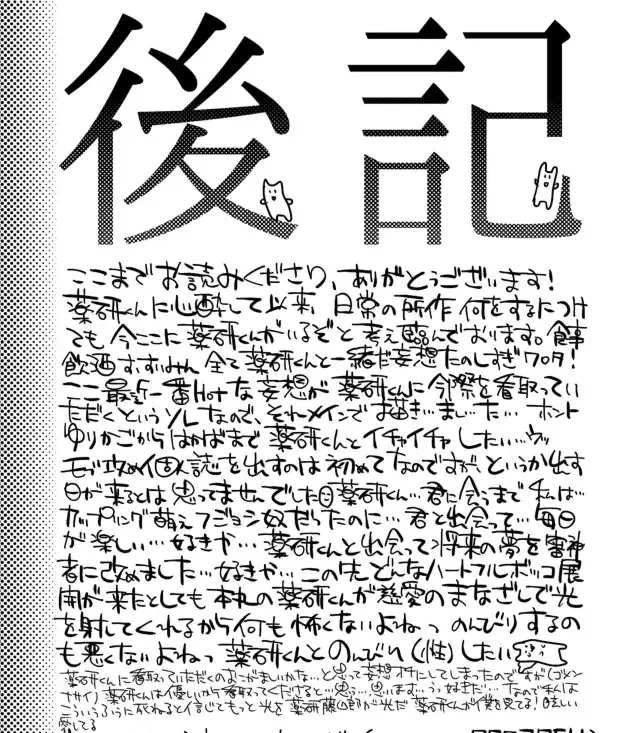 後記
ここまでお読みくださり、ありがとうございます!
薬研くんに心酔して以来、日常の所作何をするにつけ
ても今ここに薬研くんがいるぞと考え臨んでおります。食事
飲酒すいみん全て薬研くんと一緒だ妄想たのしすぎワロタ!
ここ最近一番Hotな妄想が薬研くんに今際を看取ってい
ただくというソレなので、それメインでお描き…まし…た…ホント
ゆりかごからはかばまで薬研くんとイチャイチャしたい…ウッ
モブ攻め個人誌を出すのは初めてなのですが、というか出す
日が来るとは思ってませんでした薬研くん…君に会うまで私は…
カップリング萌えフジョシ奴だったのに…君と出会って…毎日
が楽しい…好きか…薬研くんと出会って将来の夢を審神
者に改めました…好きや…この先どんなハートフルボッコ展
開が来たとしても本丸の薬研くんが慈愛のまなざしで光
を射してくれるから何も怖くないよねっ のんびりするの
も悪くないよねっ 薬研くんとのんびり(性)したい
薬研くんに看取っていただくのおこがましいかな…と思って妄想オチにしてしまったのですが(ゴメン
ナサイ)薬研くんは優しいから看取ってくださると…思う…思います…うっ好きだ…なので私は
こういうふうに死ねると信じてもっと光を薬研藤四郎が光だ 薬研くんが僕を見てる!眩しい
愛してる